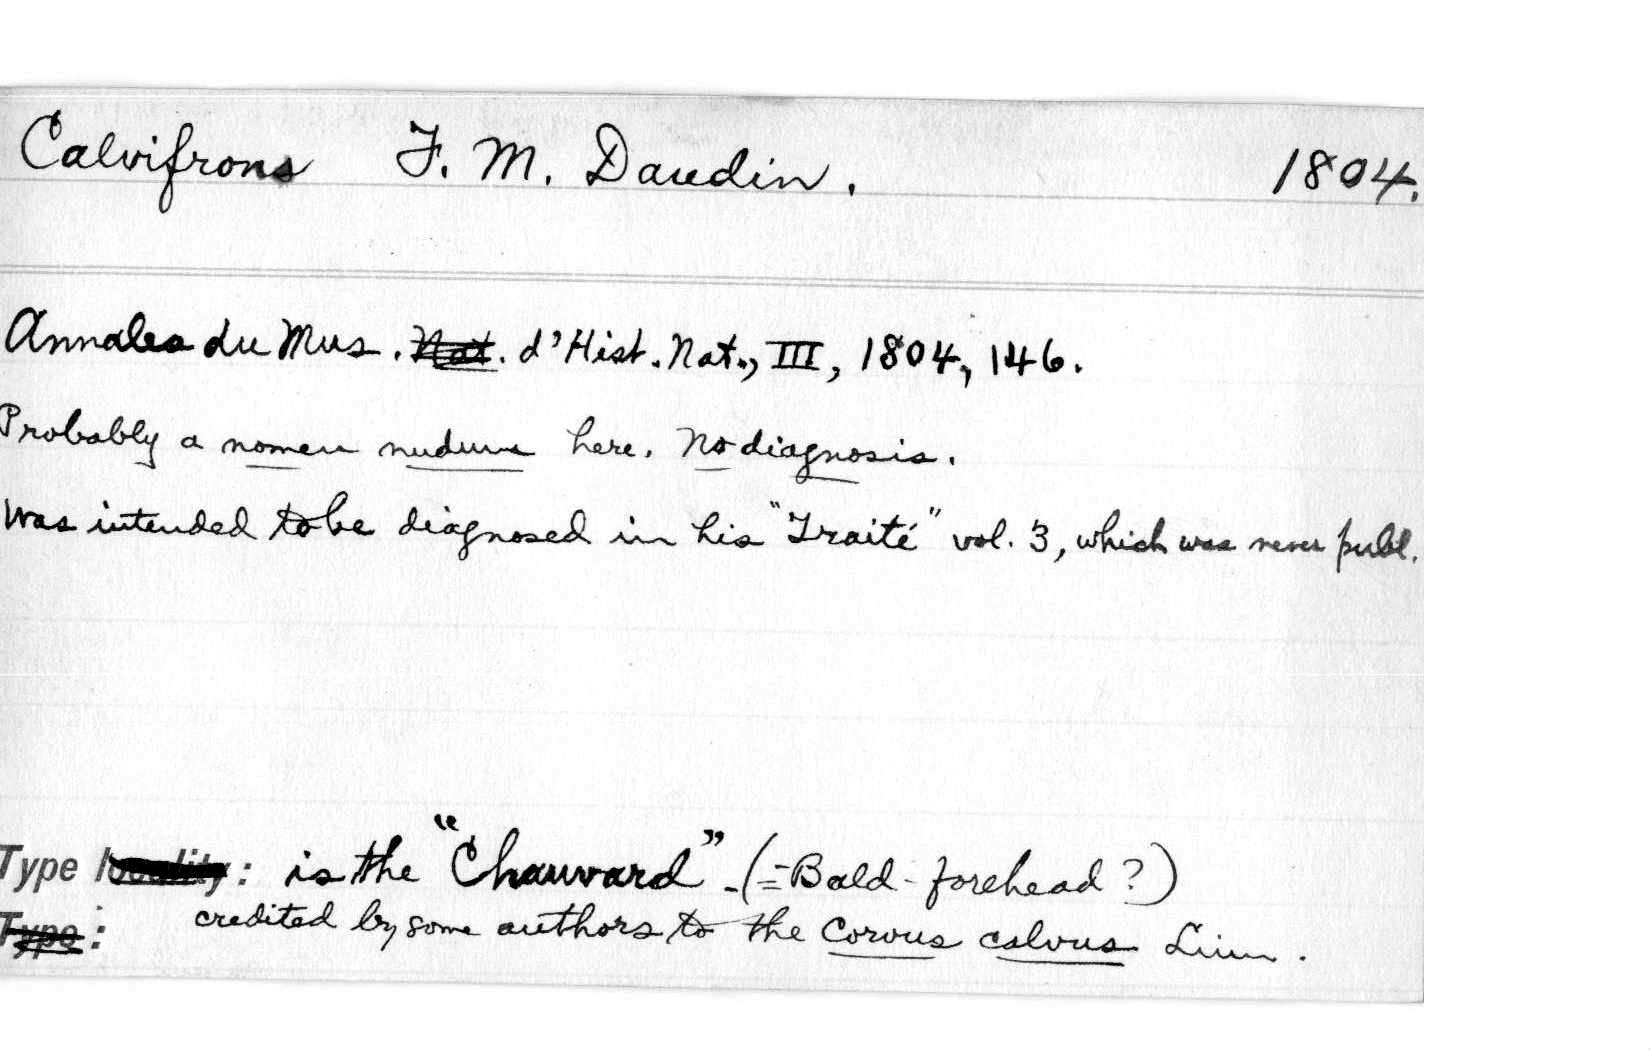 Calvifrons F. M. Daudin. 1804.
Annales du Mus. Nat. d'Hist. Nat., III, 1804, 146.
Probably a nomen nudum here. No diagnosis.
Was intended to be diagnosed in his "Traité" vol. 3, which was never publ.
Type locality: is the "Chauvard" - (=Bald-forehead?)
Type: credited by some authors to the Corvus calvus Linn.